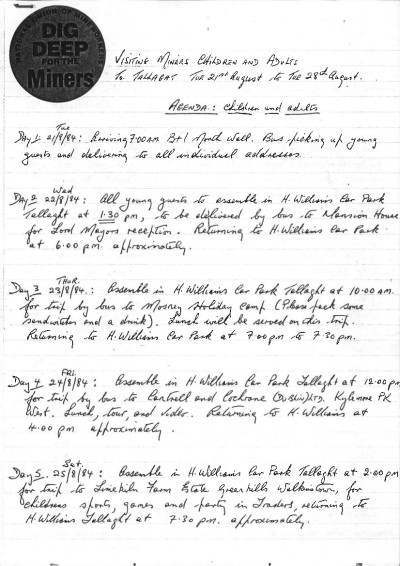 NATIONAL UNION OF MINE WORKERS
DIG
DEEP
FOR THE
Miners
VISITING MINERS CHILDREN AND ADULTS
TO TALLAGHT TUE 21st August to TUE 28th August.
AGENDA: children and adults
Tue
Day 1: 21/8/84: Arriving 7.00AM B+I North Wall. Bus picking up young
guests and delivering to all individual addresses.
Wed
Day 2 22/8/84: All young guests to assemble in H. Williams Car Park
Tallaght at 1.30 pm, to be delivered by bus to Mansion House
for Lord Mayors reception. Returning to H. Williams Car Park
at 6.00 pm. approximately.
Thur.
Day 3 23/8/84. Assemble in H. Williams Car Park Tallaght at 10.00 AM.
for trip by bus to Mosney Holiday Camp (Please pack some
sandwiches and a drink). Lunch will be served on this trip.
Returning to H. Williams Car Park at 7.00 pm to 7.30 pm.
FRI.
Day 4 24/8/84: Assemble in H. Williams Car Park Tallaght at 12.00 pm
for trip by bus to Cantrell and Cochrane (Dublin) LTD. Kylemore PK
West. Lunch, tour, and video. Returning to H. Williams at
4.00 pm approximately.
Sat.
Day 5. 25/8/84: Assemble in H. Williams Car Park Tallaght at 2.00 pm
for trip to Limekiln Farm Estate Greenhills Walkinstown, for
childrens sports, games and party in Traders, returning to
H. Williams Tallaght at 7.30 pm. approximately.